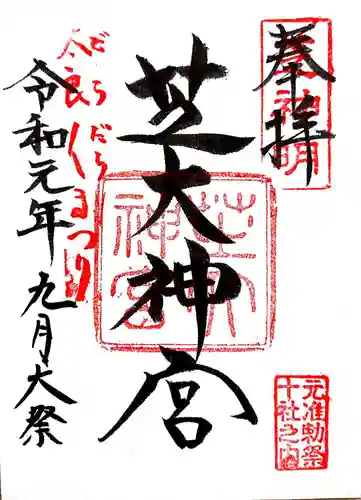 奉拝
元神明
芝大神宮
芝大神宮
元准勅祭
十社之内
だらだら
太良くまつり
令和元年九月大祭